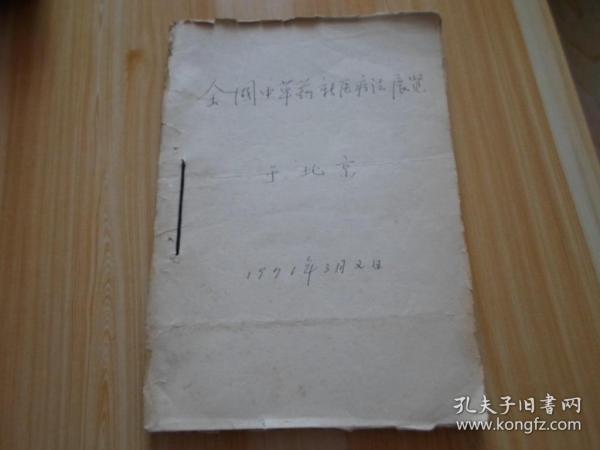 全国中草药新医疗法展览
于北京
1971年3月2日
孔夫子旧书网
www.kongfz.com